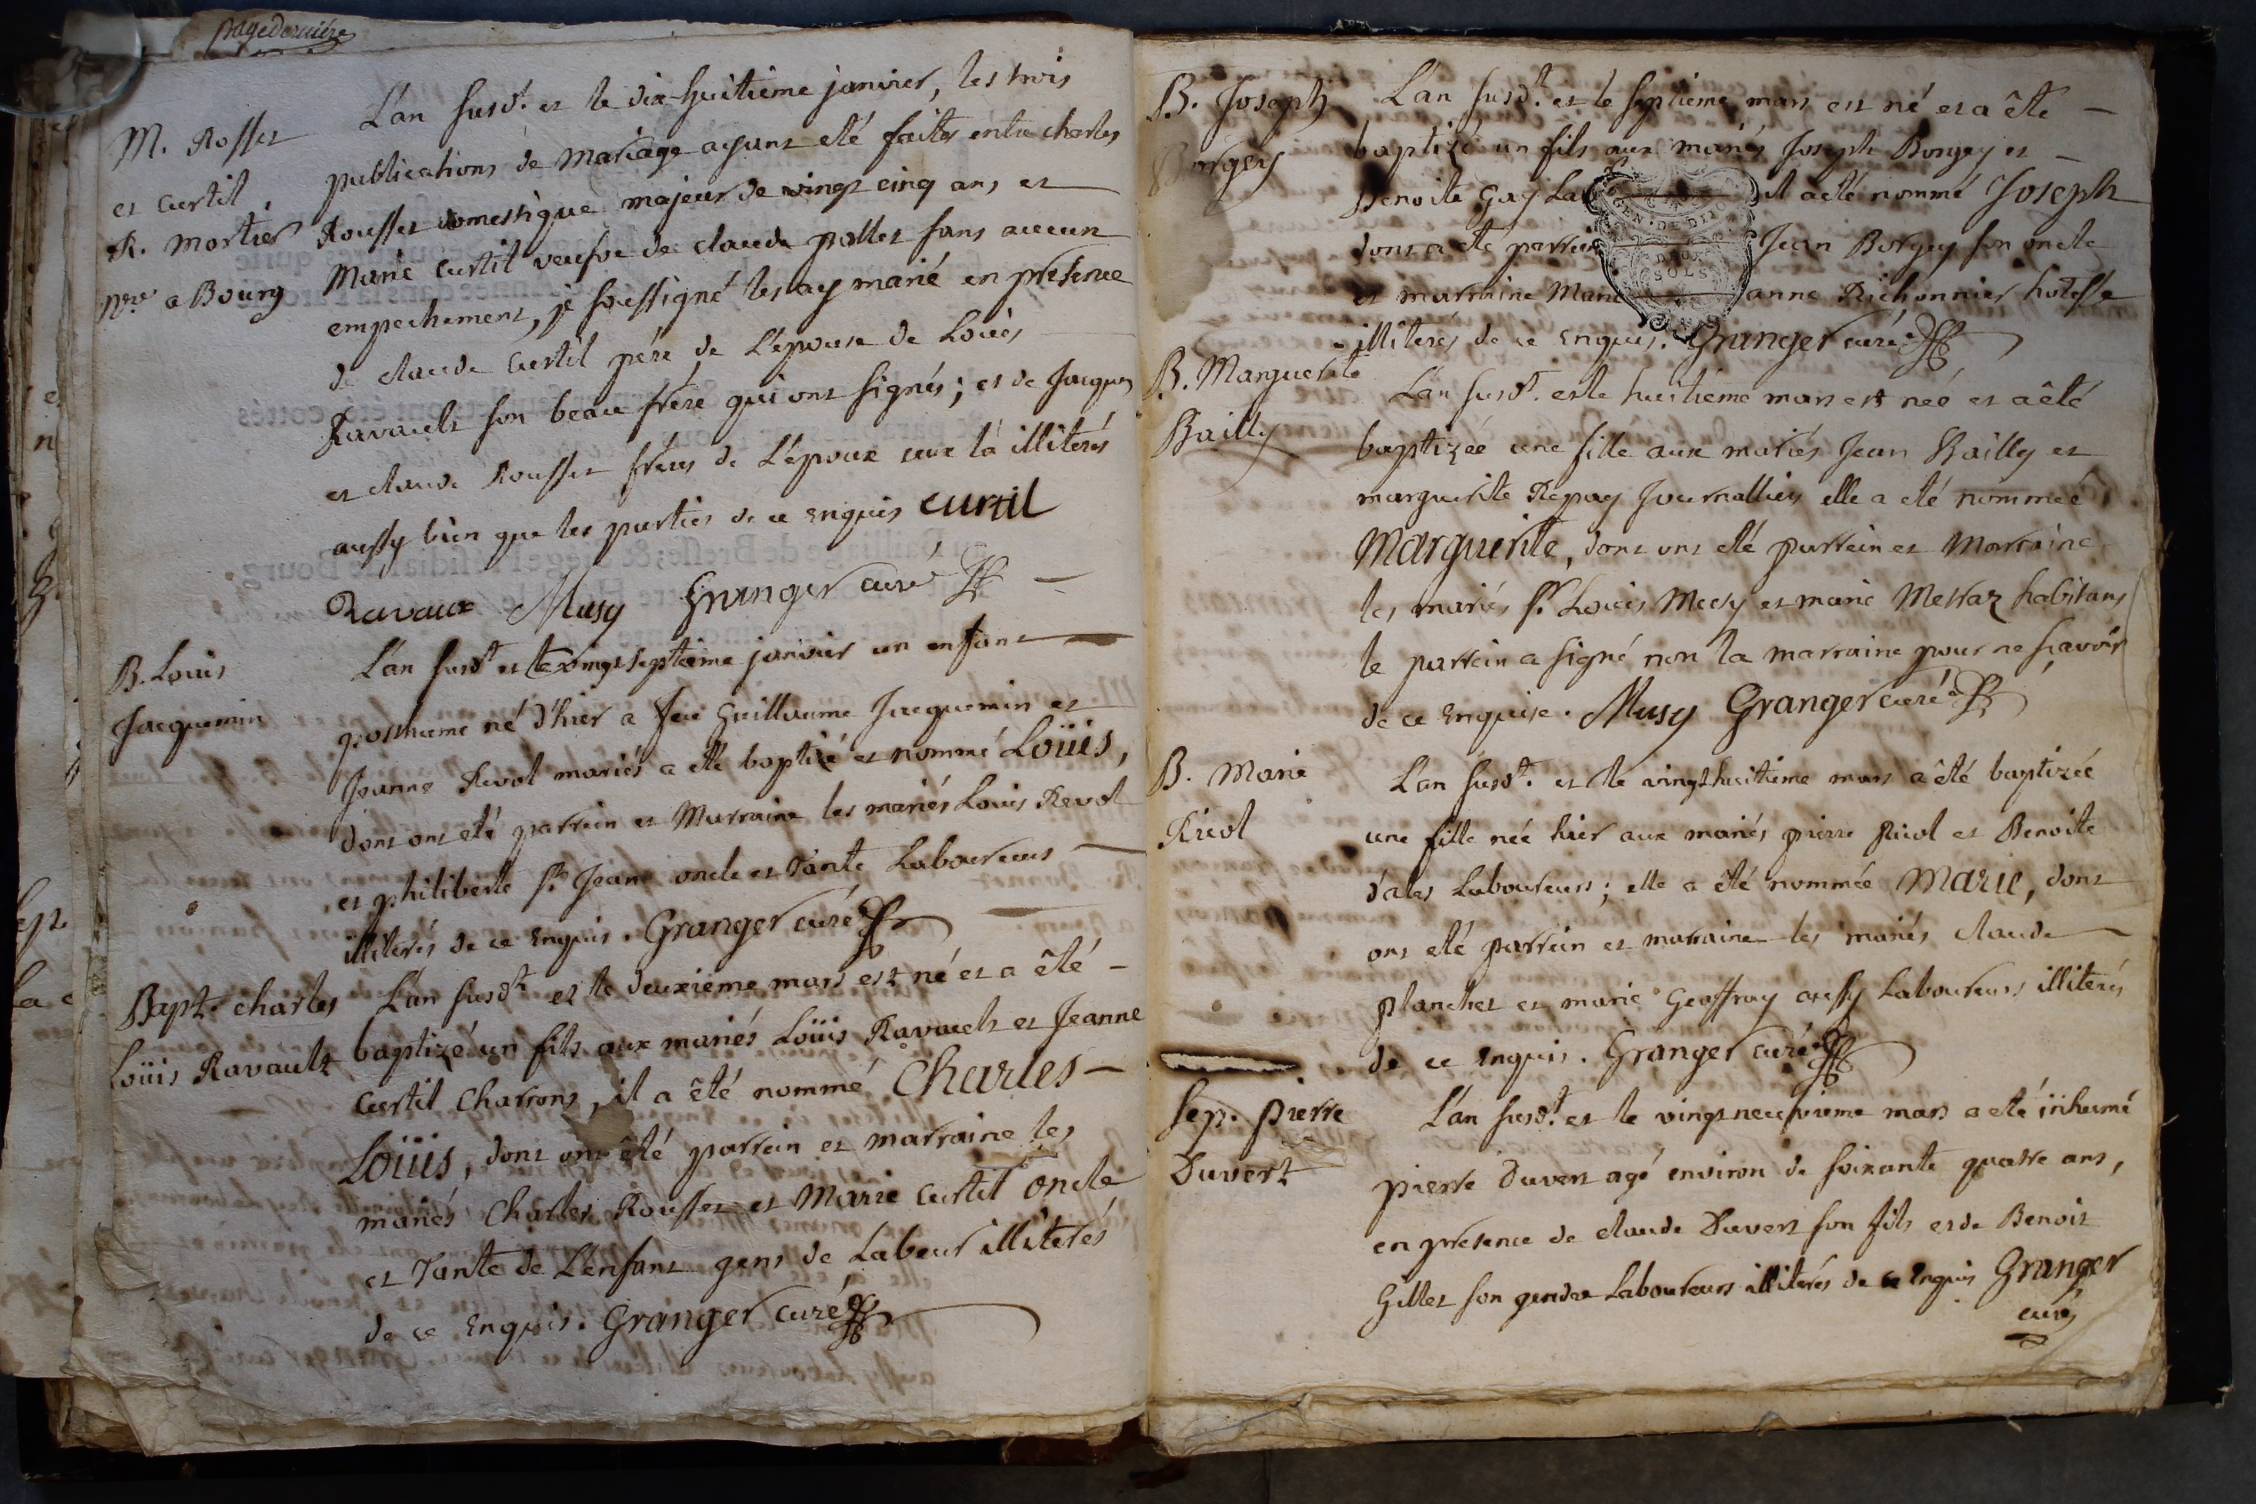 page derniére
M. Rosset
et Curtil
R. Mortier
nre a Bourg
L'an susdt. et le dix-huitieme janvier, les trois
publications de Mariage ayant eté faites entre charles
Rousset domestique majeur de vingt cinq ans, et
Marie Curtil veufve de claude pollet sans aucun
empechement, je soussigné les ay marié en presence
de claude Curtil pére de L'epouse de Loüis
Ravault son beau frére qui ont signés; et de Jacques
et claude Rousset fréres de L'époux ceux là illiterés
aussy bien que les parties de ce enquis Curtil
Ravaux Musy Granger curé
B. Loüis
Jacquemin
L'an susdt. et le vingt septieme janvier un enfant
posthume né d'hier a feu Guillaume Jacquemin et
Jeanne Revol mariés a eté baptizé et nommé Loüis,
dont ont eté parrein et Marraine les mariés Louis Revol
et philiberte st. Jean oncle et tante Laboureurs
illiterés de ce enquis. Granger curé
Bapt. charles
Loüis Ravault
L'an susdt. et le deuxieme mars est né et a êté
baptizé un fils aux mariés Loüis Ravault et Jeanne
Curtil Charrons, il a êté nommé Charles
Loüis, dont ont êté parrein et marraine les
mariés Charles Rousset et Marie Curtil oncle
et Tante de L'enfant gens de Labeur illiterés
de ce enquis. Granger curé
B. Joseph
Borgey
L'an susdt. et le septieme mars est né et a êté
baptizé un fils aux mariés Joseph Borgey et
Benoite Gay il a eté nommé Joseph
dont a eté parrein Jean Borgey son oncle
et marraine Marie anne Richonnier hotesse
illiterés de ce enquis. Granger curé
GEN. DE DIJON
DEUX
SOLS
B. Marguerite
Bailly
L'an susdt. et le huitieme mars est neé et a êté
baptizeé une fille aux mariés Jean Bailly et
marguerite Repay Journalliers elle a eté nommeé
Marguerite, dont ont eté parrein et Marraine
les mariés sr. Loüis Meesy et marie Metraz habitans
le parrein a signé non la marraine pour ne sçavoir
de ce enquise. Musy Granger curé
B. Marie
Ricol
L'an susdt. et le vingt huitieme mars a êté baptizée
une fille née hier aux mariés pierre Ricol et Benoite
dales Laboureurs; elle a êté nommée Marie, dont
ont eté parrein et marraine les mariés claude
planchet et marie Geoffray aussy Laboureurs illiterés
de ce enquis. Granger curé
Sep. pierre
Duvert
L'an susdt. et le vingt neuvieme mars a eté inhumé
pierre Duvert agé environ de soixante quatre ans,
en presence de claude Duvert son fils et de Benoit
Gillet son gendre Laboureurs illiterés de ce enquis Granger
curé